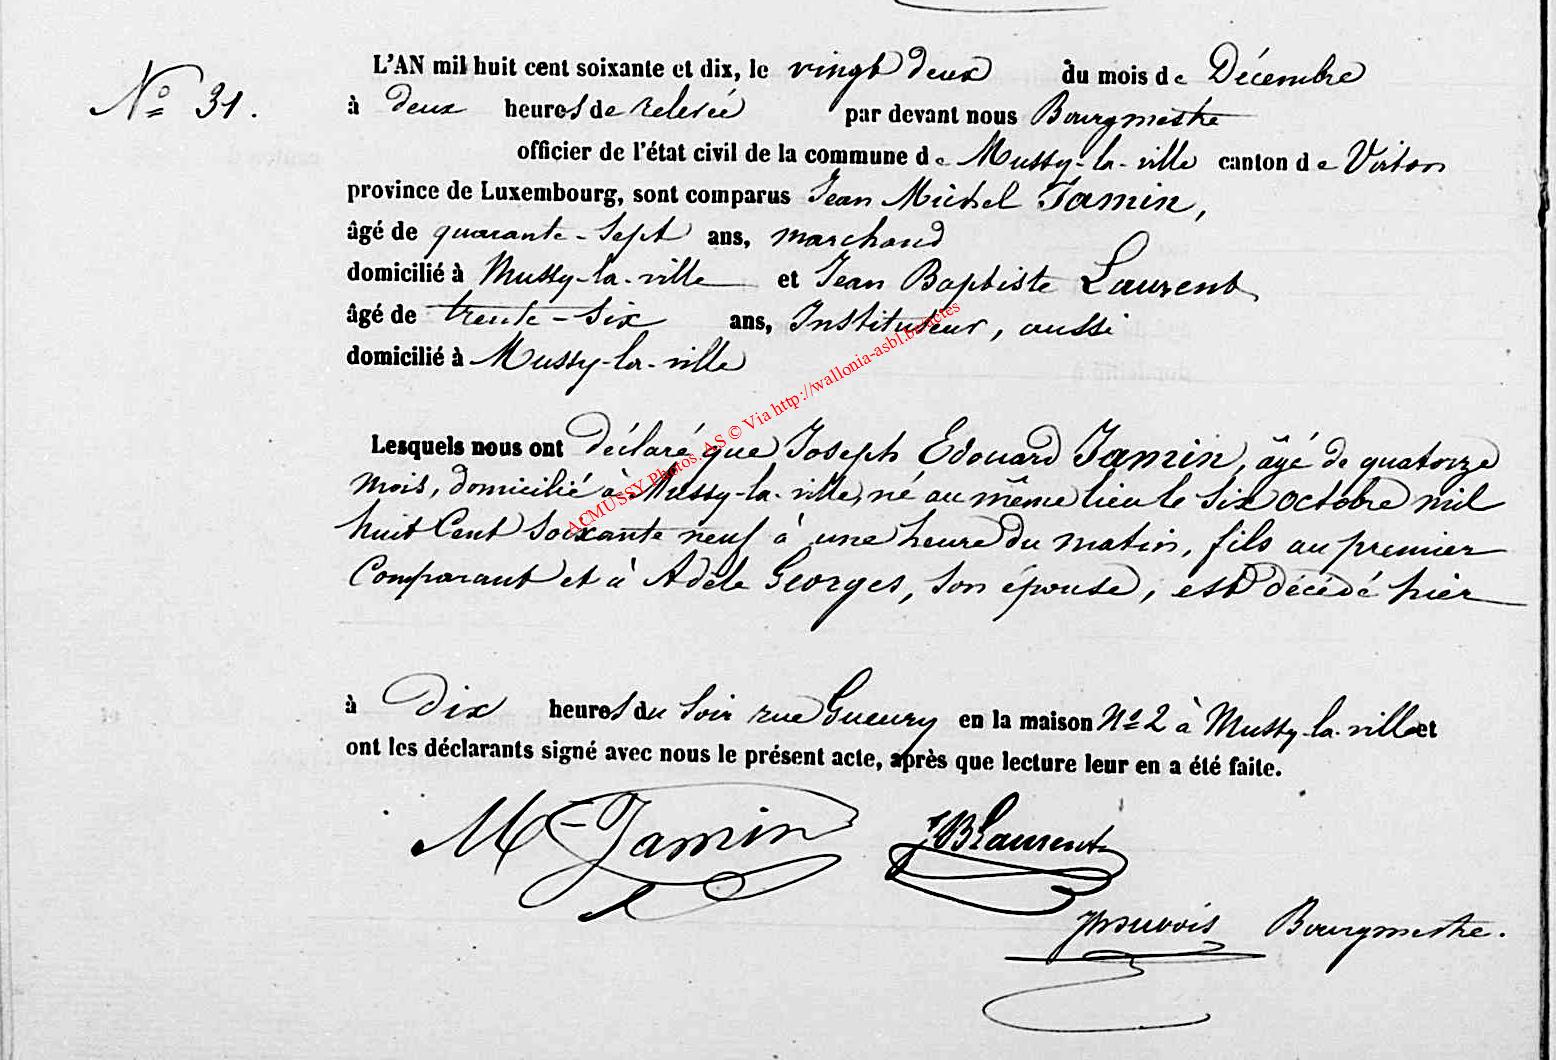 N° 31.
L'AN mil huit cent soixante et dix, le vingt deux du mois de Décembre
à deux heures de relevée par devant nous Bourgmestre
officier de l'état civil de la commune de Mussy-la-ville canton de Virton
province de Luxembourg, sont comparus Jean Michel Jamin,
âgé de quarante-sept ans, marchand
domicilié à Mussy-la-ville et Jean Baptiste Laurent
âgé de trente-six ans, Instituteur, aussi
domicilié à Mussy-la-ville
Lesquels nous ont déclaré que Joseph Edouard Jamin, âgé de quatorze
mois, domicilié à Mussy-la-ville, né au même lieu le six octobre mil
huit Cent soixante neuf à une heure du matin, fils au premier
Comparant et à Adèle Georges, son épouse, est décédé hier
à Dix heures du soir rue Gueury en la maison N° 2 à Mussy-la-ville et
ont les déclarants signé avec nous le présent acte, après que lecture leur en a été faite.
M Jamin JBLaurent
Bourgmestre.
ACMUSSY Photos. AS © Via http://wallonia-asbl.be/actes